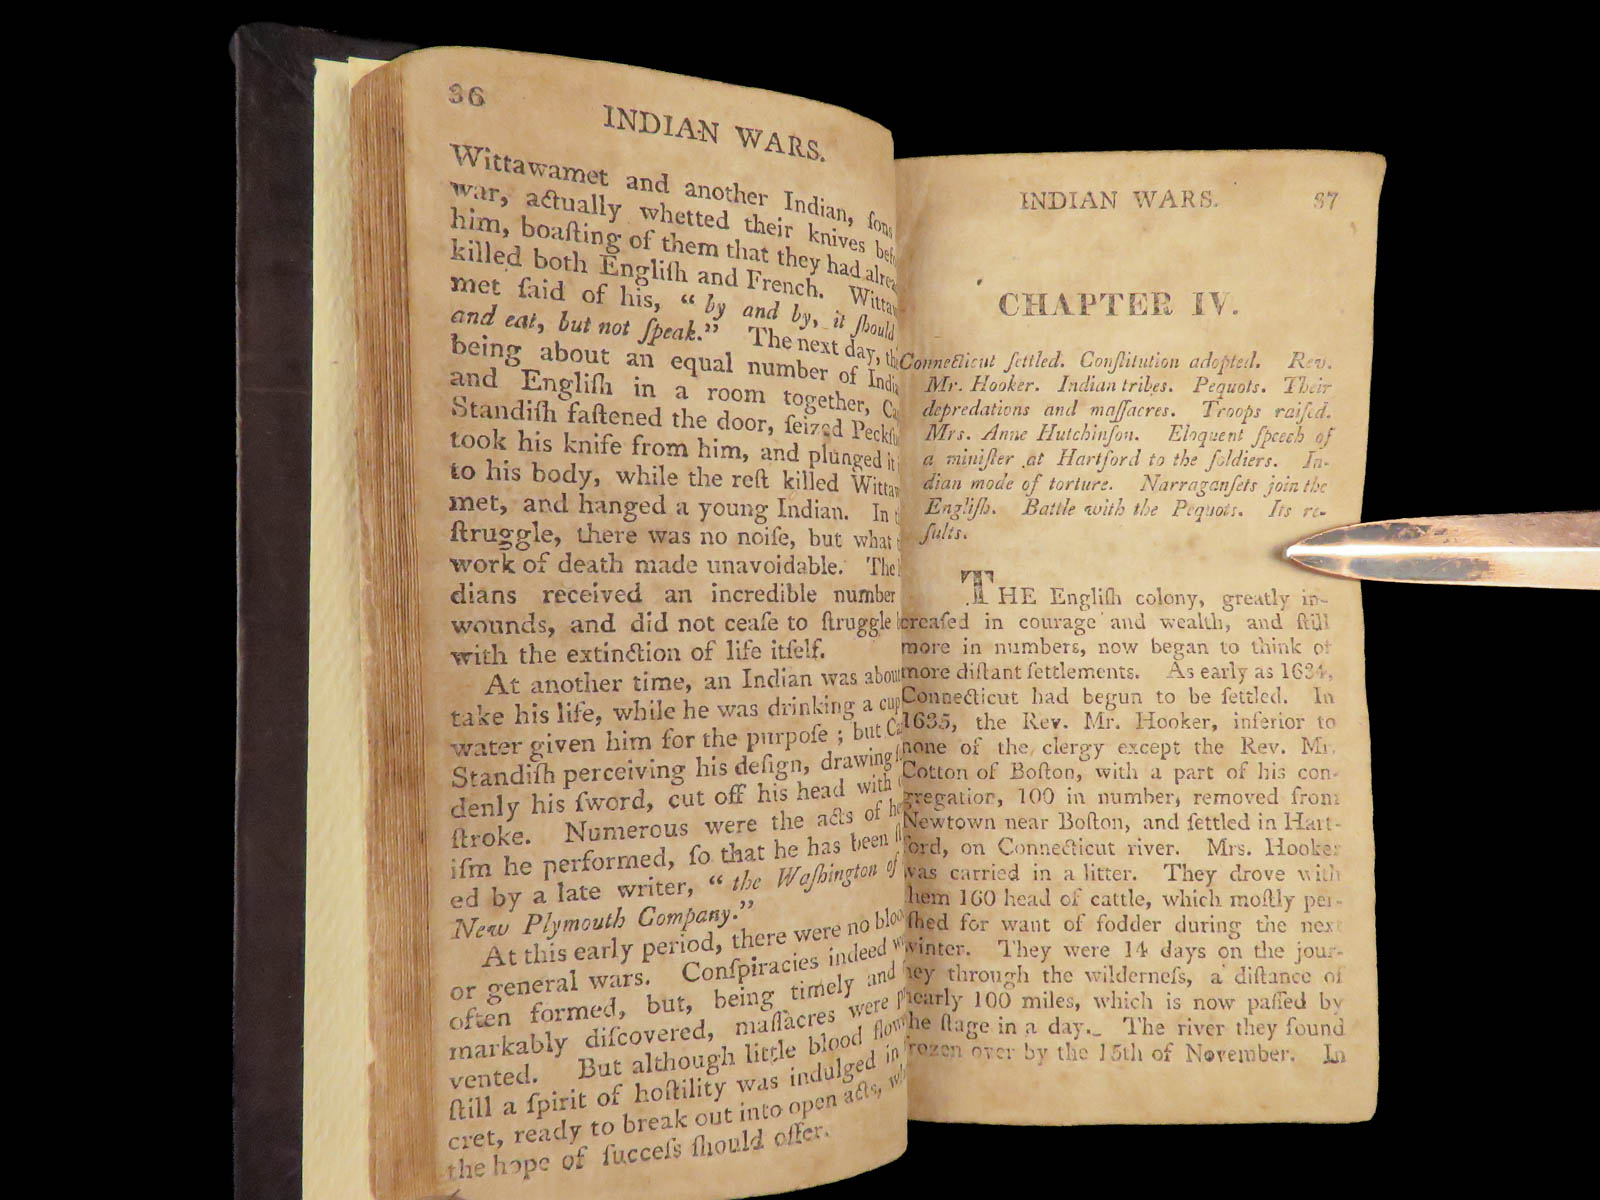 36
INDIAN WARS.
Wittawamet and another Indian, ſons
war, actually whetted their knives
him, boaſting of them that they had
killed both Engliſh and French.
met ſaid of his, “ by and by, it ſhould
and eat, but not ſpeak.” The next day,
being about an equal number of
and Engliſh in a room together,
Standiſh faſtened the door, ſeized
took his knife from him, and plunged it
to his body, while the reſt killed
met, and hanged a young Indian. In
ſtruggle, there was no noiſe, but what
work of death made unavoidable. The
dians received an incredible number
wounds, and did not ceaſe to ſtruggle
with the extinction of life itſelf.
At another time, an Indian was
take his life, while he was drinking a cup
water given him for the purpoſe ; but
Standiſh perceiving his deſign, drawing
denly his ſword, cut off his head with
ſtroke. Numerous were the acts of
iſm he performed, ſo that he has been
ed by a late writer, “ the Waſhington of
New Plymouth Company.”
At this early period, there were no
or general wars. Conſpiracies indeed
often formed, but, being timely and
markably diſcovered, maſſacres were
vented. But although little blood
ſtill a ſpirit of hoſtility was indulged in
cret, ready to break out into open acts,
the hope of ſucceſs ſhould offer.
INDIAN WARS. 37
CHAPTER IV.
Connecticut ſettled. Conſtitution adopted. Rev.
Mr. Hooker. Indian tribes. Pequots. Their
depredations and maſſacres. Troops raiſed.
Mrs. Anne Hutchinſon. Eloquent ſpeech of
a miniſter at Hartford to the ſoldiers. In-
dian mode of torture. Narraganſets join the
Engliſh. Battle with the Pequots. Its re-
ſults.
THE Engliſh colony, greatly in-
creaſed in courage and wealth, and ſtill
more in numbers, now began to think of
more diſtant ſettlements. As early as 1634,
Connecticut had begun to be ſettled. In
1635, the Rev. Mr. Hooker, inferior to
none of the clergy except the Rev. Mr.
Cotton of Boſton, with a part of his con-
gregation, 100 in number, removed from
Newtown near Boſton, and ſettled in Hart-
ford, on Connecticut river. Mrs. Hooker
was carried in a litter. They drove with
them 160 head of cattle, which moſtly per-
iſhed for want of fodder during the next
winter. They were 14 days on the jour-
ney through the wilderneſs, a diſtance of
nearly 100 miles, which is now paſſed by
the ſtage in a day. The river they found
frozen over by the 15th of November. In